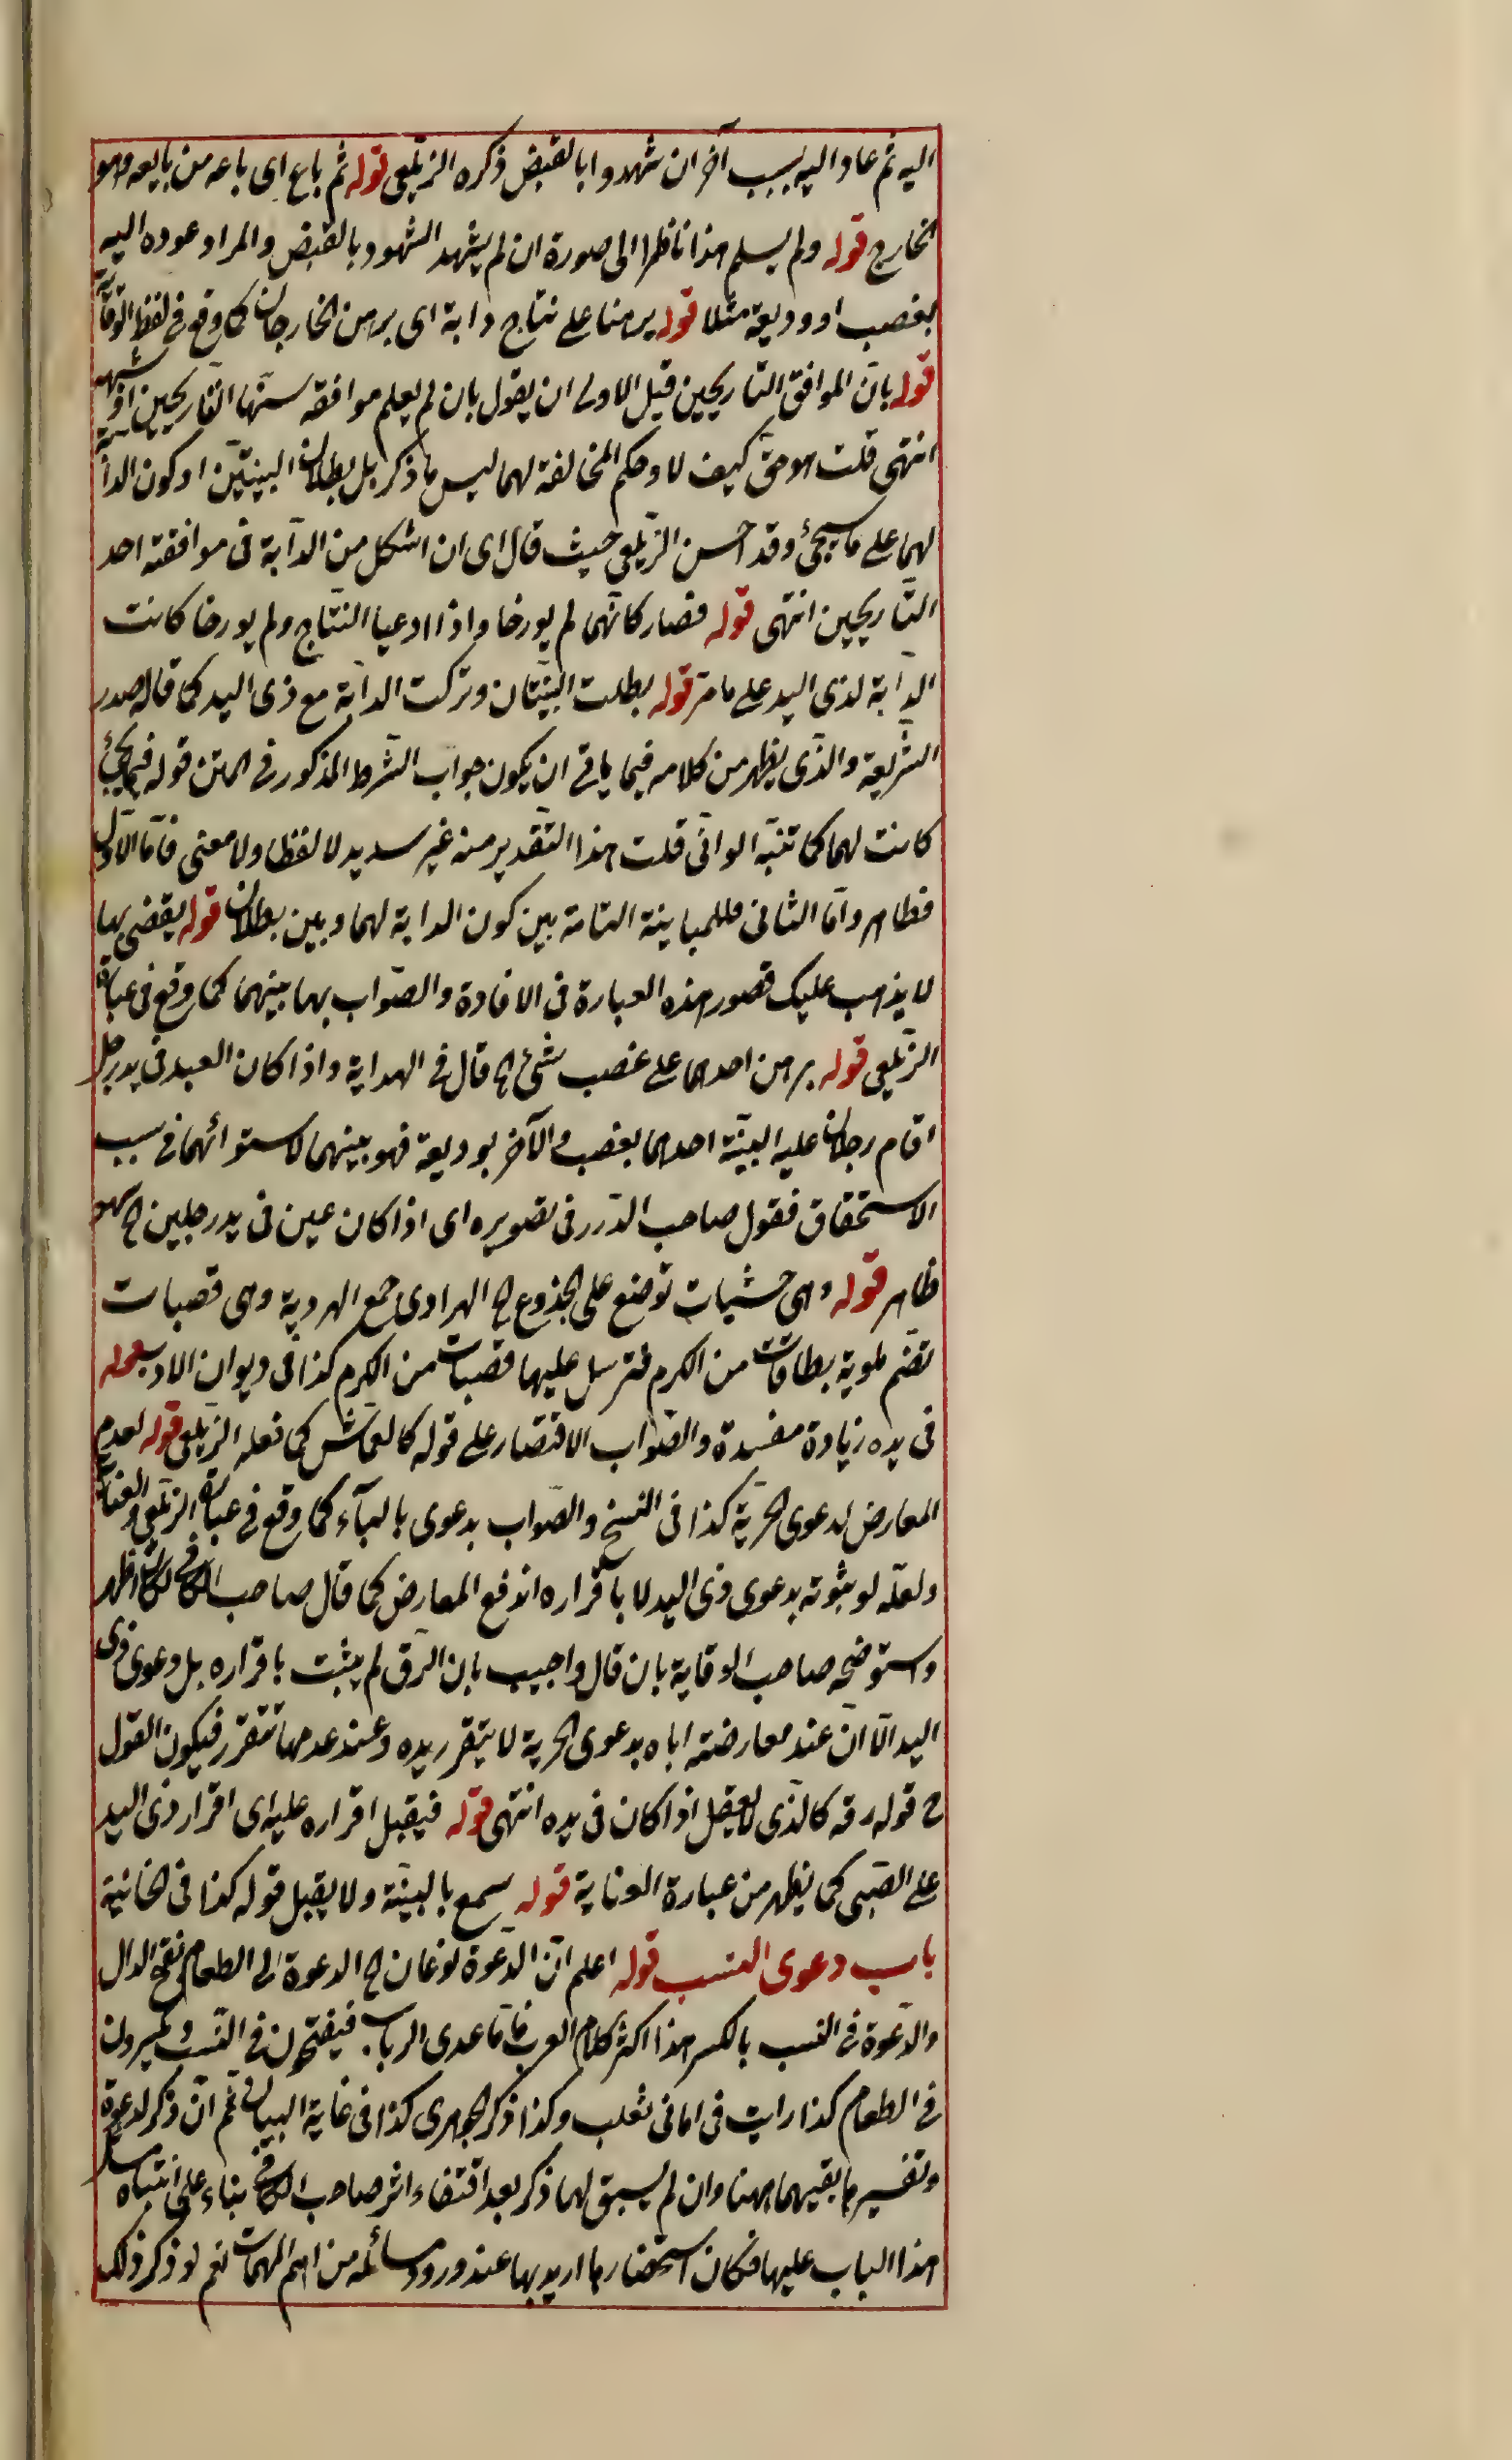 اليه ثم عاد اليه بسبب آخر ان شهدوا بالقبض ذكره الزيلعى قوله ثم باع اى باعه من بايعه وهو
الخارج قوله ولم يسلم هذا ناظر الى صورة ان لم يشهد الشهود بالقبض والمراد عوده اليه
بغصب او وديعة مثلا قوله برهنا على نتاج دابة اى برهن الخارجان كما وقع فى لفظ الوقاية
قوله بان الموافق التاريخين قيل الاولى ان يقول بان لم يعلم موافقة سنها التاريخين او شبهه
انتهى قلت هو حق كيف لا وحكم المخالفة لهما ليس ما ذكر بل بطلان البينتين او كون الدابة
لهما على ما سيجئ وقد احسن الزيلعى حيث قال اى ان اشكل سن الدآبة فى موافقته احد
التاريخين انتهى قوله فصار كانهما لم يورخا واذا ادعيا النتاج ولم يورخا كانت
الدآبة لذى اليد على ما مر قوله بطلت البينتان وتركت الدابة مع ذى اليد كما قاله صدر
الشريعة والذى يظهر من كلامه فيما ياتى ان يكون جواب الشرط المذكور فى المتن قوله فيما يجئ
كانت لهما كما تنبه الوانى قلت هذا التقدير منه غير سديد لا لفظا ولا معنى فاما الاول
فظاهر واما الثانى فللمباينة التامة بين كون الدابة لهما وبين بطلان قوله يقضى بها
لا يذهب عليك قصور هذه العبارة فى الافادة والصواب بها بينهما كما وقع فى عبارة
الزيلعى قوله برهن احدهما على غصب شئ الح قال فى الهداية واذا كان العبد فى يد رجل
اقام رجلان عليه البينة احدهما بغصب والآخر بوديعة فهو بينهما لاستوائهما فى سبب
الاستحقاق فقول صاحب الدرر فى تصويره اى اذا كان عين فى يد رجلين الح سهو
ظاهر قوله وهى خشبات توضع على الجذوع الح الهرادى جمع الهردية وهى قصبات
تضم ملوية بطاقات من الكرم فترسل عليها قصبات من الكرم كذا فى ديوان الادب قوله
فى يده زيادة مفسدة والصواب الاقتصار على قوله كالقماش كما فعله الزيلعى قوله لعدم
المعارض لدعوى الحرية كذا فى النسخ والصواب بدعوى بالبآء كما وقع فى عبارة الزيلعى والعناية
ولعله لو ثبوته بدعوى ذى اليد لا باقراره اندفع المعارض كما قال صاحب الكافى لكان اظهر
واستوضحه صاحب الوقاية بان قال واجيب بان الرق لم يثبت باقراره بل دعوى ذى
اليد الا ان عند معارضته اياه بدعوى الحرية لا يتقرر يده وعند عدمها تتقرر فيكون القول
ح قوله رقه كالذى لا يعقل اذا كان فى يده انتهى قوله فيقبل اقراره عليه اى اقرار ذى اليد
على الصبى كما يظهر من عبارة العناية قوله سمع بالبينة ولا يقبل قوله كذا فى الخانية
باب دعوى النسب قوله اعلم ان الدعوة نوعان الح الدعوة الى الطعام بفتح الدال
والدعوة فى النسب بالكسر هذا اكثر كلام العرب فاما عدى الرباب فيفتحون فى النسب ويكسرون
فى الطعام كذا رايت فى امالى ثعلب وكذا ذكر الجوهرى كذا فى غاية البيان ثم ان ذكر الدعوة
وتفسيرها بقسيمها هنا وان لم يسبق لهما ذكر بعد اقتضاء اثر صاحب الكافى بناء على ابتناء مسائل
هذا الباب عليها فكان استحضار ما اريد بها عند ورود مسائله من اهم المهمات نعم لو ذكر ذلك